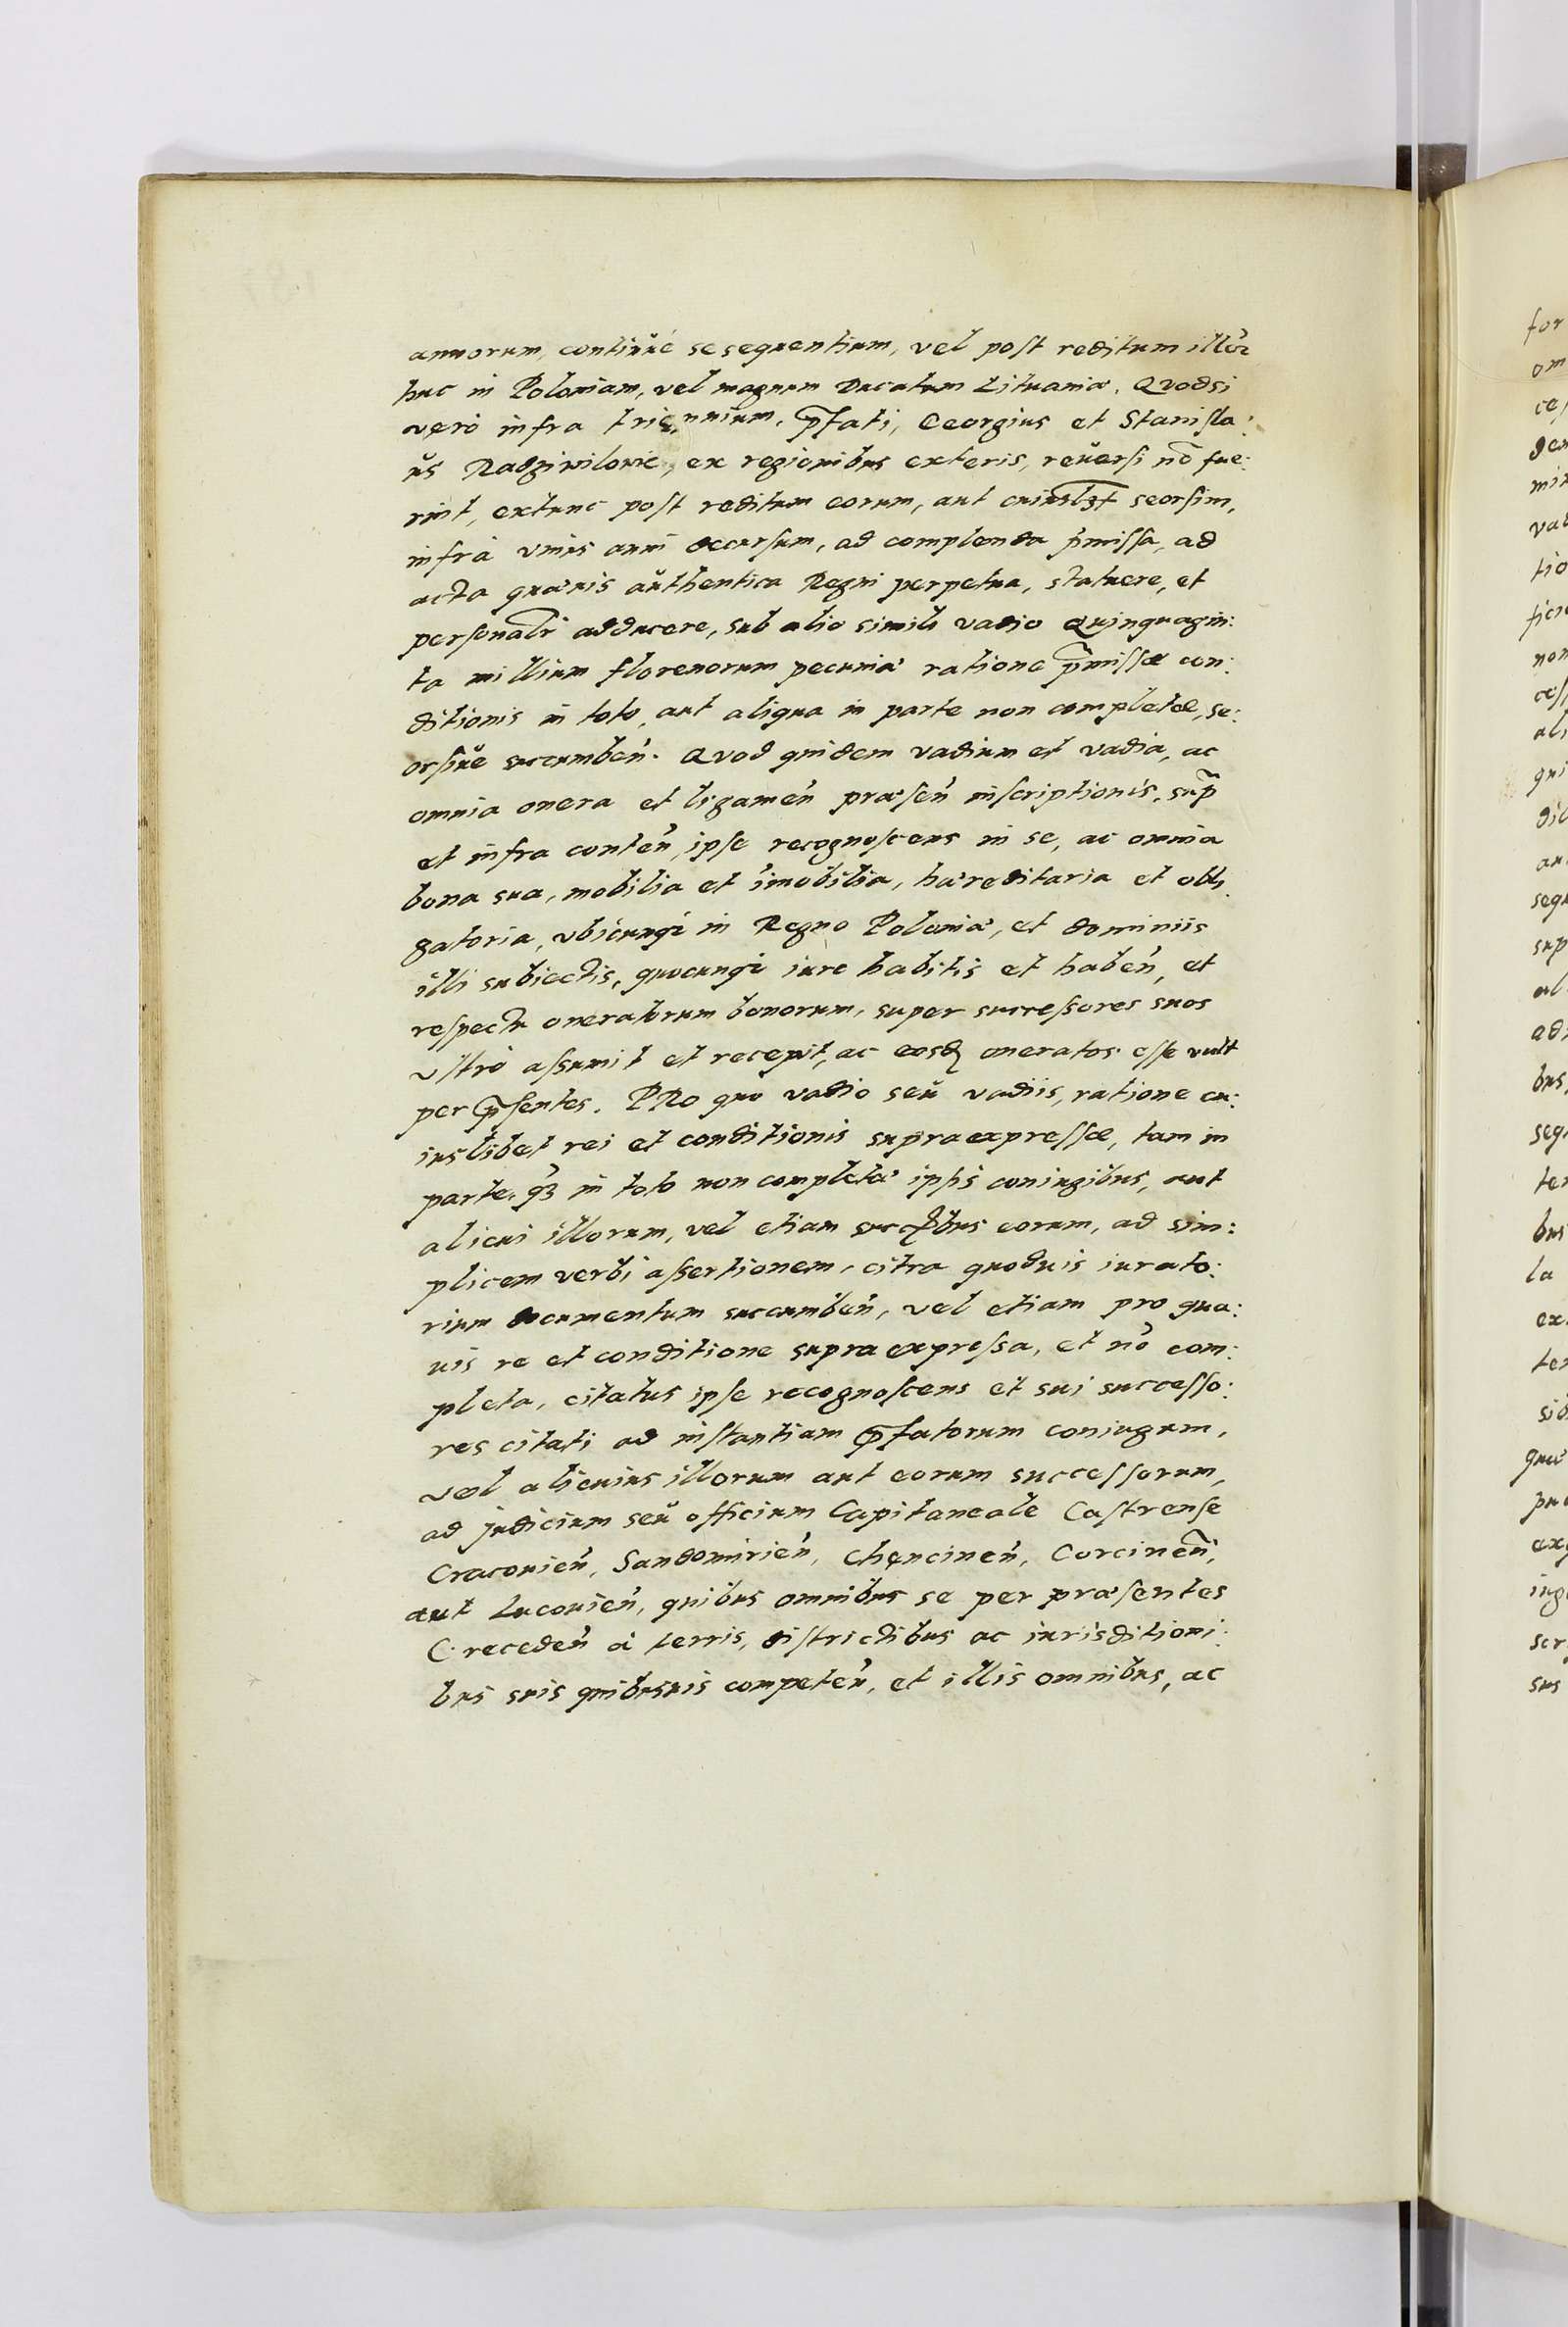 annorum, continué se sequentium, vel post reditum illoꝝ
huc in Poloniam, vel magnum Ducatum Lituaniæ. Quodsi
verò infra triennium, p̄fati, Georgius et Stanisla:
us Radziwilowic, ex regionibus exteris, reuersi nō fue:
rint, extunc post reditum eorum, aut cuiuslꝫt seorsim,
infrà vnius anni decursum, ad complenda p̄missa, ad
acta quæuis authentica Regni perpetua, statuere, et
personalr̄ adducere, sub alio simili vadio Quinquagin:
ta millium florenorum pecuniæ ratione p̄missæ con:
ditionis in toto, aut aliqua in parte non completæ, se:
orsiue succumbeñ. Quod quidem vadium et vadia, ac
omnia onera et ligameñ præseñ inscriptionis, sup̄
et infra conteñ, ipse recognoscens in se, ac omnia
bona sua, mobilia et īmobilia, hæreditaria et obli
gatoria, vbicunqꝫ in Regno Poloniæ, et dominiis
illi subiectis, quocunqꝫ iure habitis et habeñ, et
respectu oneratorum bonorum, super successores suos
vltrò assumit et recepit, ac eosdꝫ oneratos esse vult
per p̄sentes. PRo quo vadio seu vadiis, ratione cu:
iuslibet rei et conditionis supra expressæ, tam in
parte, qꝫ in toto non completæ ipsis coniugibus, aut
alicui illorum, vel etiam succ̄ribus eorum, ad sim:
plicem verbi assertionem, citra quoduis iurato:
rium documentum succumbeñ, vel etiam pro qua:
uis re et conditione supra expressa, et nō com:
pleta, citatus ipse recognoscens et sui successo:
res citati ad instantiam p̄fatorum coniugum,
vel alicuius illorum aut eorum successorum,
ad judicium seu officium Capitaneale Castrense
Cracouieñ, Sandomirieñ, Chęncineñ, Corcineñ,
aut Lucouieñ, quibus omnibus se per præsentes
C. recedeñ à terris, districtibus ac iurisditioni:
bus suis quibusuis competeñ, et illis omnibus, ac